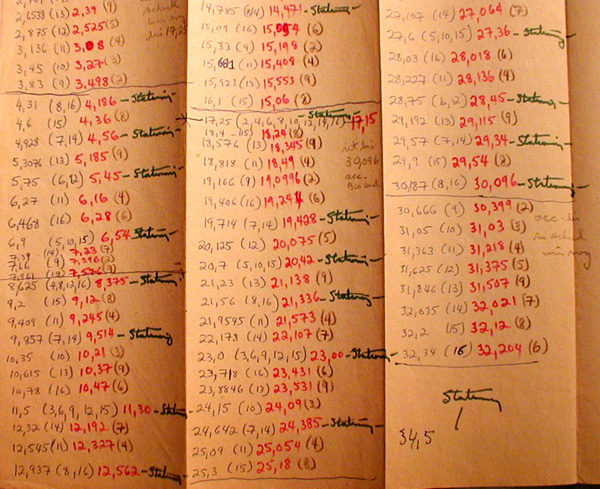 2,6533 (13) 2,39 (9)
2,875 (12) 2,525 (5)
3,136 (11) 3,08 (4)
3,45 (10) 3,27 (3)
3,83 (9) 3,498 (2)
4,31 (8,16) 4,186 - Statuning
4,6 (15) 4,36 (8)
4,928 (7,14) 4,56 - Statuning
5,3076 (13) 5,185 (9)
5,75 (6,12) 5,45 - Statuning
6,27 (11) 6,16 (4)
6,468 (16) 6,28 (6)
6,9 (5,10,15) 6,54 Statuning
7,39 (14) 7,23 (7)
7,66 (9) 7,396 (2)
7,961 (13) 7,576 (9)
8,625 (4,8,12,16) 8,375 - Statuning
9,2 (15) 9,12 (8)
9,409 (11) 9,245 (4)
9,857 (7,14) 9,514 - Statuning
10,35 (10) 10,21 (3)
10,615 (13) 10,37 (9)
10,78 (16) 10,47 (6)
11,5 (3,6,9,12,15) 11,30 - Statuning
12,32 (14) 12,192 (7)
12,545 (11) 12,327 (4)
12,937 (8,16) 12,562 - Statuning
14,785 (8/4) 14,471 - Statuning
15,09 (16) 15,054 (6)
15,33 (9) 15,198 (2)
15,681 (11) 15,408 (4)
15,923 (13) 15,553 (9)
16,1 (15) 15,06 (8)
17,25 (2,4,6,8,10,12,14,16) 17,15 - Statuning
18,4 - (15) 18,24 (8)
18,576 (13) 18,345 (9)
18,818 (11) 18,49 (4)
19,166 (9) 19,0996 (2)
19,406 (16) 19,244 (6)
19,714 (7,14) 19,428 - Statuning
20,125 (12) 20,075 (5)
20,7 (5,10,15) 20,42 - Statuning
21,23 (13) 21,138 (9)
21,56 (8,16) 21,336 - Statuning
21,9545 (11) 21,573 (4)
22,178 (14) 22,107 (7)
23,0 (3,6,9,12,15) 23,00 - Statuning
23,718 (16) 23,431 (6)
23,8846 (13) 23,531 (9)
24,15 (10) 24,09 (3)
24,642 (7,14) 24,385 - Statuning
25,09 (11) 25,054 (4)
25,3 (15) 25,18 (8)
30,096
acc.
27,107 (14) 27,064 (7)
27,6 (5,10,15) 27,36 - Statuning
28,03 (16) 28,018 (6)
28,227 (11) 28,136 (4)
28,75 (6,12) 28,45 - Statuning
29,192 (13) 29,115 (9)
29,57 (7,14) 29,34 - Statuning
29,9 (15) 29,54 (8)
30,187 (8,16) 30,096 - Statuning
30,666 (9) 30,399 (2)
31,05 (10) 31,03 (3)
31,363 (11) 31,218 (4)
31,625 (12) 31,375 (5)
31,846 (13) 31,507 (9)
32,035 (14) 32,021 (7)
32,2 (15) 32,12 (8)
32,34 (16) 32,204 (6)
Statuning
34,5